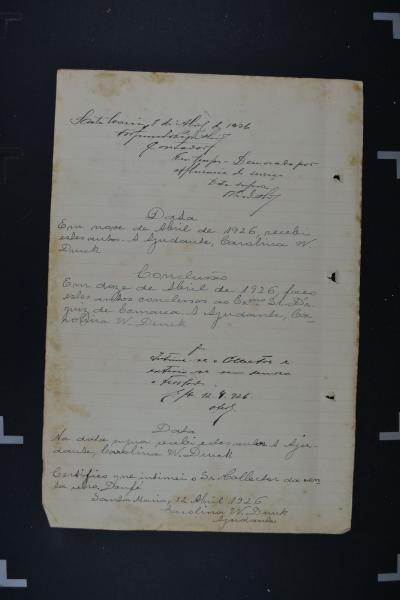 Santa Maria, 8 de Abril de 1926
Contador
Em tempo - Demorado por
affluencia de serviço
Data supra
Data
Em nove de Abril de 1926, recebi
estes autos. A Ajudante, Carolina W.
Druck
Conclusão
Em doze de Abril de 1926, faço
estes autos conclusos ao Exmo. Sr. Dr.
Juiz de Comarca. A Ajudante, Ca-
rolina W. Druck
Intime-se o Collector e
S. M. 12.4.926.
Data
Na data supra recebi estes autos. A Aju-
dante, Carolina W. Druck
Certifico que intimei o Sr. Collector da
Dou fé
Santa Maria, 12 Abril 1926
Carolina W. Druck
Ajudante